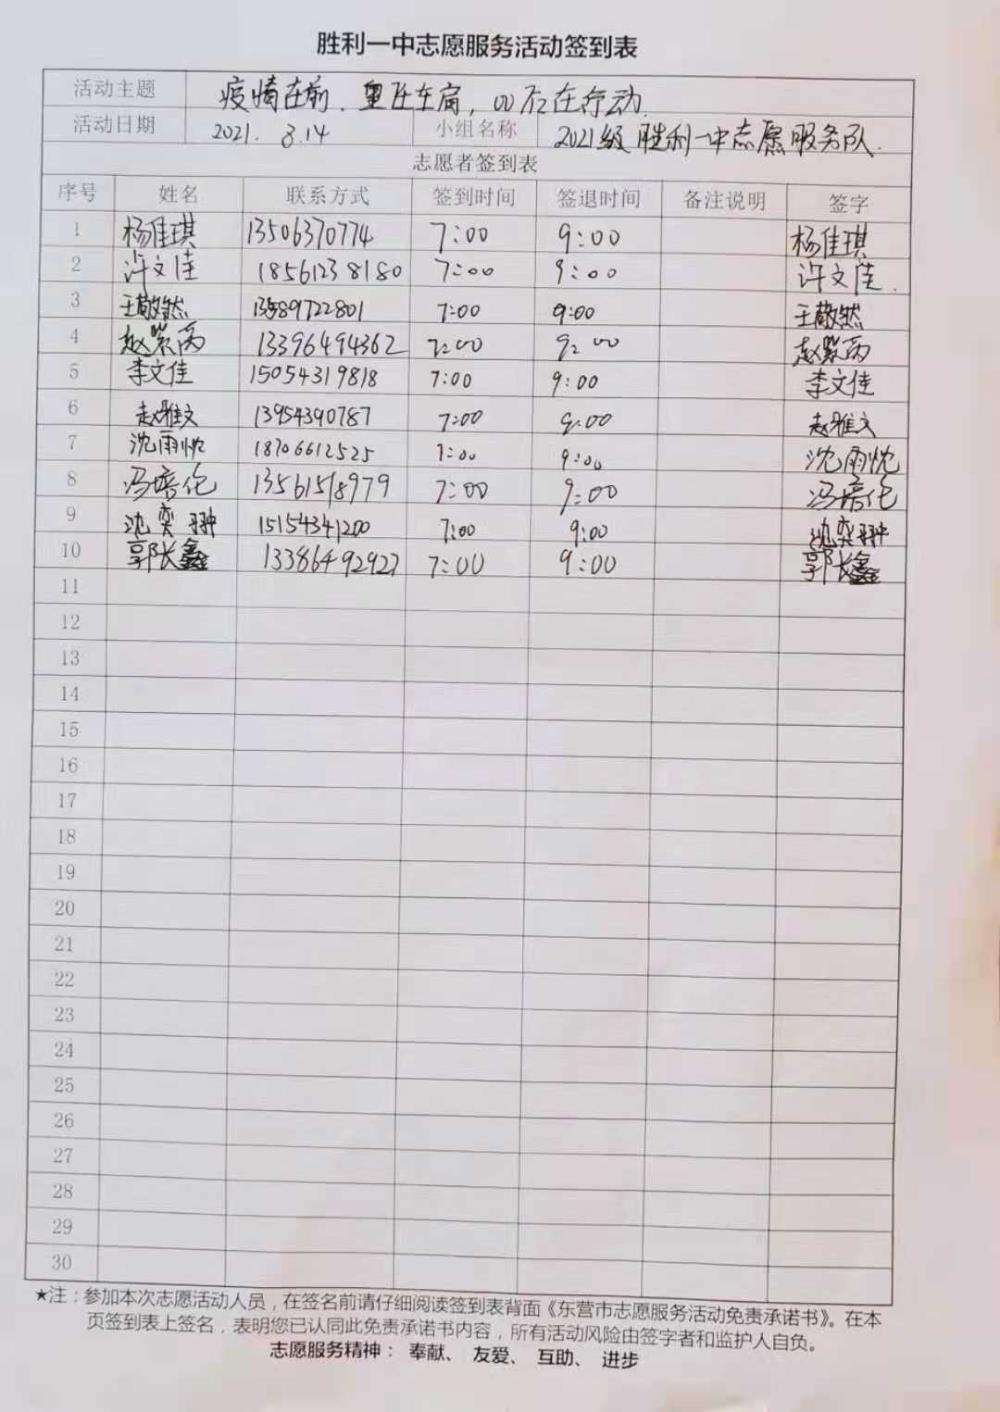 胜利一中志愿服务活动签到表
活动主题 疫情在前, 重任在肩, 我们在行动.
活动日期 2021. 3.14 小组名称 2021级胜利一中志愿服务队.
志愿者签到表
序号 姓名 联系方式 签到时间 签退时间 备注说明 签字
1 杨佳琪 13506370774 7:00 9:00 杨佳琪
2 许文佳 18561238180 7:00 9:00 许文佳.
3 王敬然 13589722801 7:00 9:00 王敬然
4 赵紫芮 13396494362 7:00 9:00 赵紫芮
5 李文佳 15054319818 7:00 9:00 李文佳
6 赵雅文 13954390787 7:00 9:00 赵雅文
7 沈雨忱 18706612525 7:00 9:00 沈雨忱
8 冯培伦 13561518979 7:00 9:00 冯培伦
9 沈奕翀 15154341200 7:00 9:00 沈奕翀
10 郭长鑫 13386492927 7:00 9:00 郭长鑫
11
12
13
14
15
16
17
18
19
20
21
22
23
24
25
26
27
28
29
30
★注：参加本次志愿活动人员，在签名前请仔细阅读签到表背面《东营市志愿服务活动免责承诺书》。在本
页签到表上签名，表明您已认同此免责承诺书内容，所有活动风险由签字者和监护人自负。
志愿服务精神： 奉献、 友爱、 互助、 进步